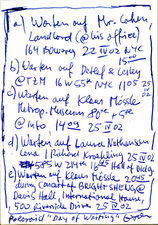 a) Warten auf Mr. Cohen,
Landlord (@ his office)
164 Bowery 22 IV 02 NYC
15 00
b) Warten auf Detlef & Cathy
@ TZM 16 W 55th NYC 1105 25 IV 02
c) Warten auf Klaus Mössle
Metrop. Museum 5th
@ Info, 1409 25 IV 02
d) Warten auf Laurel Nathanson
Lena | Richard Kroehling 25 IV 02
e) Warten auf Klaus Mössle 2045
during concert of BRIGHT SHENG @
Davis Hall, International House,
500 Riverside Drive 25 IV 02
Polaroid "Day of Waiting"